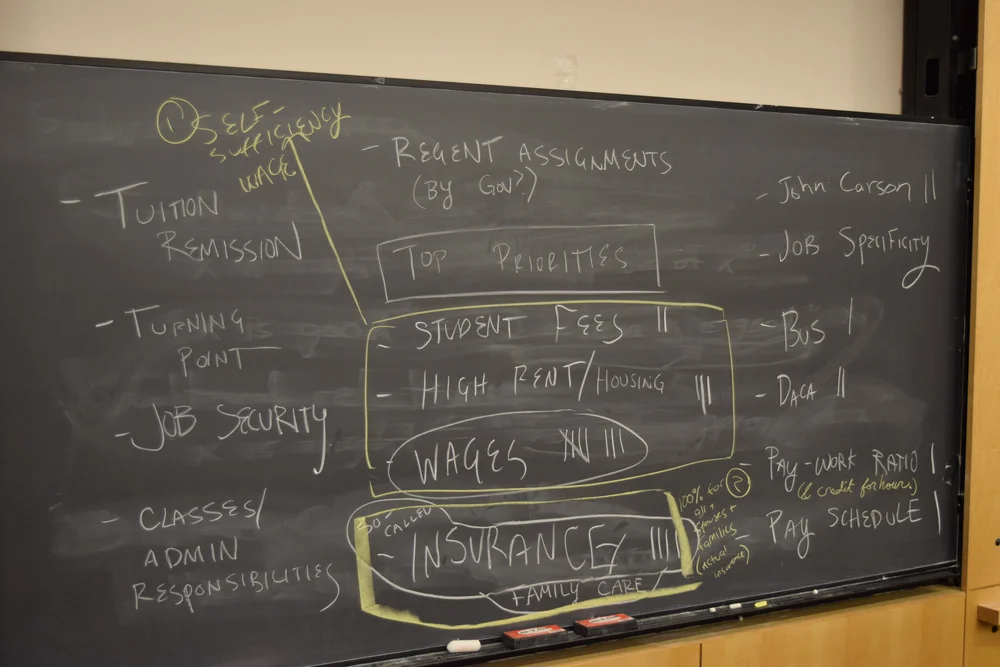 ① SELF-
SUFFICIENCY
WAGE
- TUITION
REMISSION
- TURNING
POINT
- JOB SECURITY
- CLASSES/
ADMIN
RESPONSIBILITIES
- REGENT ASSIGNMENTS
(BY GOV?)
TOP PRIORITIES
- STUDENT FEES ||
- HIGH RENT/HOUSING |||
- WAGES |||
SO CALLED
- INSURANCE/ ||||
FAMILY CARE
100% for ②
all +
spouses +
families
(actual
insurance)
- John Carson ||
- JOB SPECIFICITY
- BUS |
- DACA ||
- PAY-WORK RATIO |
(& credit for hours)
- PAY SCHEDULE |